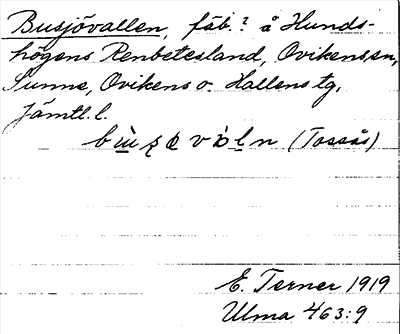 Busjövallen, fäb.? å Hunds-
högens Renbetesland, Ovikens sn,
Sunne, Ovikens o. Hallens tg,
Jämtl. l.
(Tossås)
E. Terner 1919
Ulma 463:9